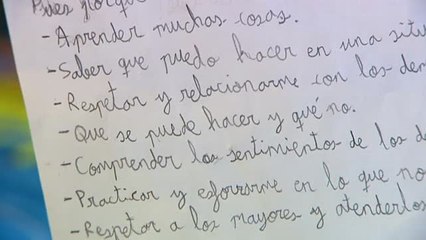 Pues porque
-Aprender muchas cosas.
-Saber que puedo hacer en una situ
-Respetar y relacionarme con los dem
-Que se puede hacer y qué no.
-Comprender los sentimientos de los d
-Practicar y esforrarme en lo que no
-Respetar a los mayores y atenderlos